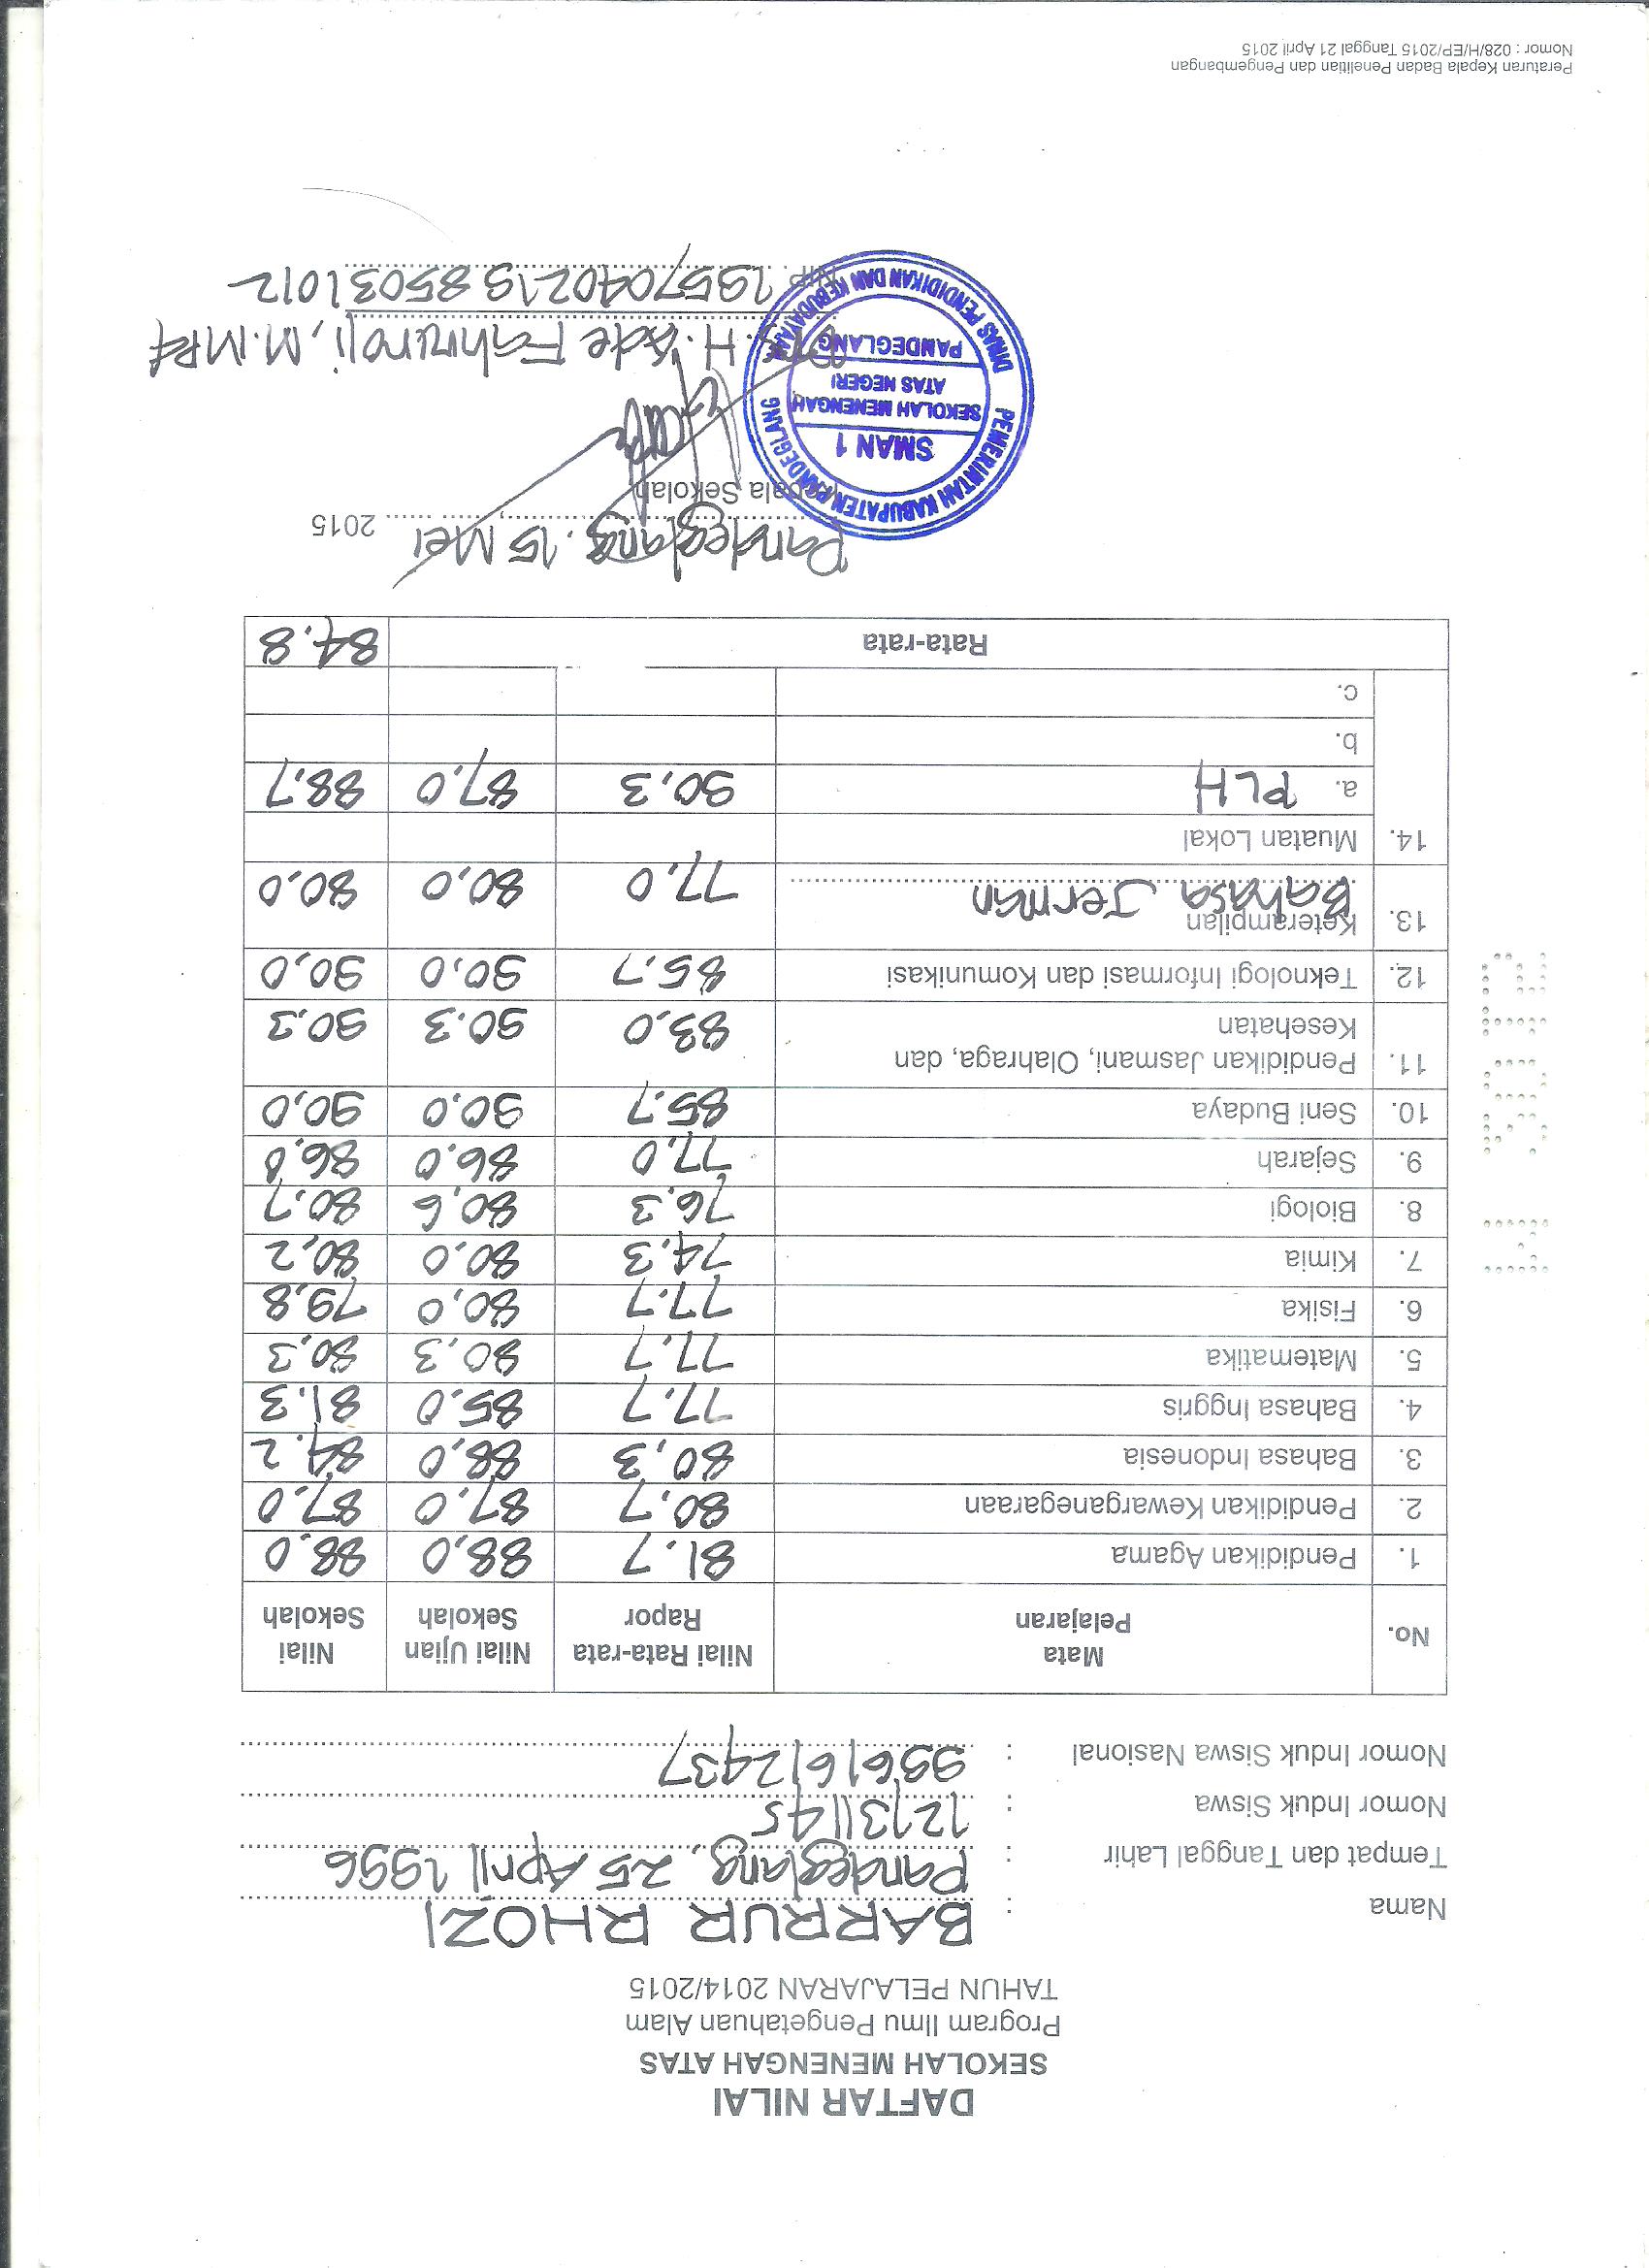 DAFTAR NILAI
SEKOLAH MENENGAH ATAS
Program Ilmu Pengetahuan Alam
TAHUN PELAJARAN 2014/2015
Nama : BARRUR RHOZI
Tempat dan Tanggal Lahir : Pandeglang, 25 April 1996
Nomor Induk Siswa : 121311145
Nomor Induk Siswa Nasional : 9961612437
No. Mata Pelajaran Nilai Rata-rata Rapor Nilai Ujian Sekolah Nilai Sekolah
1. Pendidikan Agama 81.7 88,0 88.0
2. Pendidikan Kewarganegaraan 80,7 87.0 87.0
3. Bahasa Indonesia 80,3 88,0 84.2
4. Bahasa Inggris 77.7 85.0 81.3
5. Matematika 77.7 80.3 80,3
6. Fisika 77.7 80,0 79,8
7. Kimia 74.3 80.0 80,2
8. Biologi 76.3 80,6 80.7
9. Sejarah 77.0 86.0 86.0
10. Seni Budaya 85.7 90.0 90,0
11. Pendidikan Jasmani, Olahraga, dan
Kesehatan 83,0 90.3 90,3
12. Teknologi Informasi dan Komunikasi 85.7 90,0 90,0
13. Keterampilan
Bahasa Jerman 77.0 80,0 80.0
14. Muatan Lokal
a. PLH 90,3 87,0 88.7
b.
c.
Rata-rata 84.8
Pandeglang, 15 Mei 2015
Kepala Sekolah,
PEMERINTAH KABUPATEN PANDEGLANG
SMAN 1
SEKOLAH MENENGAH
ATAS NEGERI
PANDEGLANG
DINAS PENDIDIKAN DAN KEBUDAYAAN
Drs. H. Ade Fahruroji, M.MPd
NIP. 195704021985031012
Peraturan Kepala Badan Penelitian dan Pengembangan
Nomor : 028/H/EP/2015 Tanggal 21 April 2015